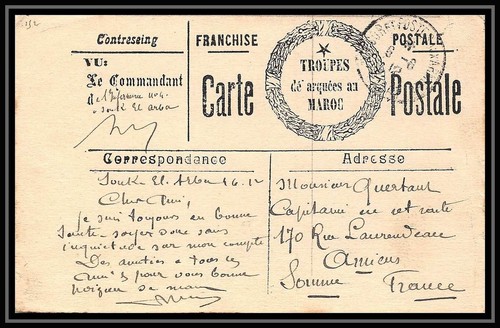 Contreseing
FRANCHISE
POSTALE
VU:
Le Commandant
de l'Infirmerie
Souk El Arba
Carte
TROUPES
débarquées au
MAROC
Postale
Correspondence
Adresse
Souk-El-Arba 6.12
Cher Ami,
Je suis toujours en bonne
Santé - soyez donc sans
inquiétude sur mon compte
Des amitiés à tous les
amis & pour vous bonne
poignée de main
Monsieur Quertant
Capitaine en retraite
170 Rue Laurendeau
Amiens
Somme France